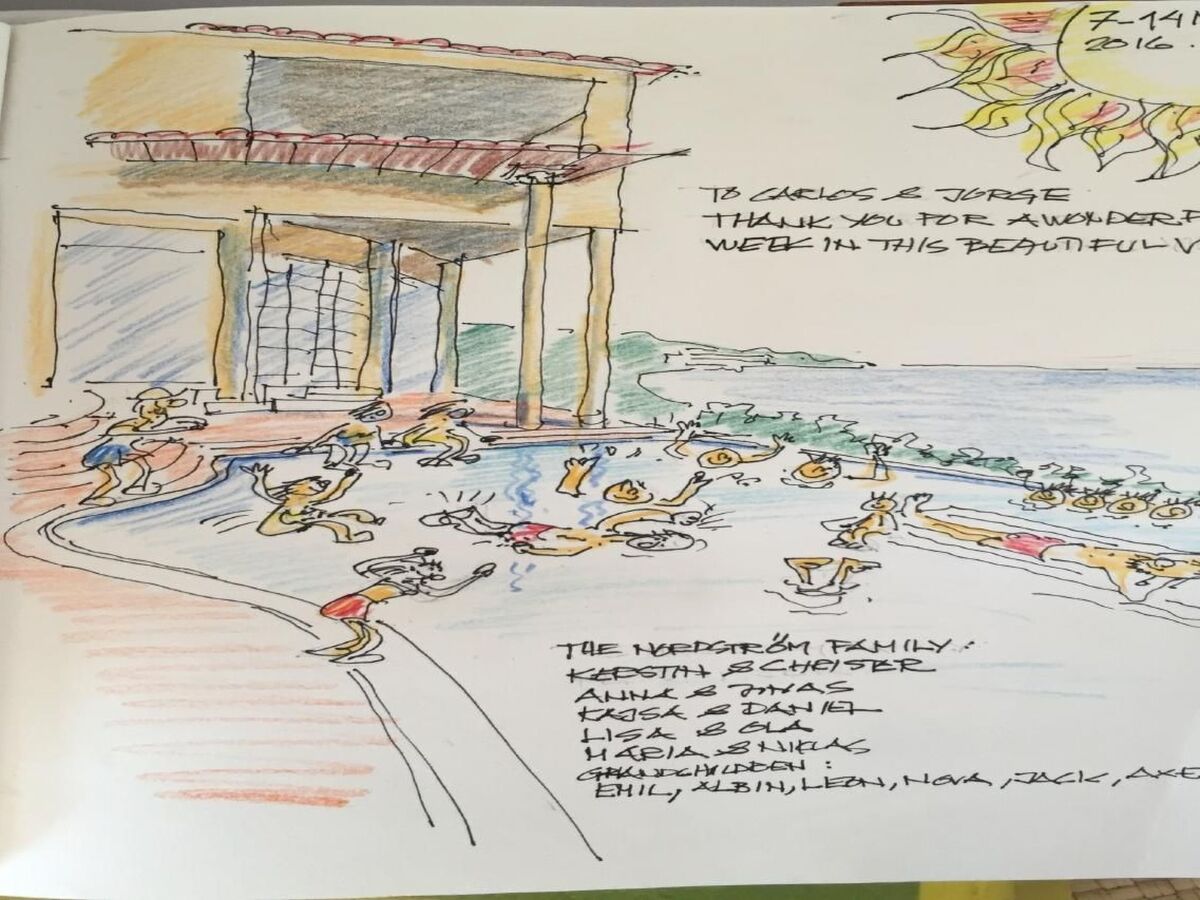 7-14
2016.
TO CARLOS & JORGE
THANK YOU FOR A WONDERF
WEEK IN THIS BEAUTIFUL V
THE NORDSTRÖM FAMILY:
KERSTIN & CHRISTER
ANNA & JONAS
KAJSA & DANIEL
LISA & OLA
MARIA & NIKLAS
GRANDCHILDREN:
EMIL, ALBIN, LEON, NOVA, JACK, AXE